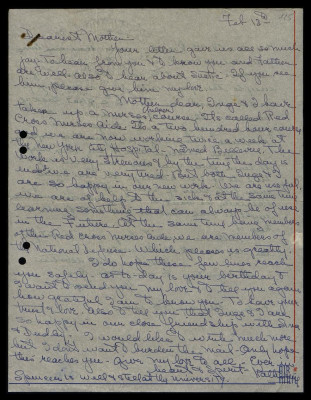 Feb 12th
Dearest Mother
Your letter gave me so much
joy to hear from you & to know you and father
are well. also to hear about Susie. If you see
him please give him my love
Mother dear, Inge & I have
taken up a nurses course. It's called Red
Cross Nurses Aide. It's a two hundred hour course
and we are now working twice a week at
the New York City Hospital named Bellevue. The
work is very strenuous & by the time the day is
ended we are very tired. But both Inge & I
are so happy in our new work. We are useful
we are of help to the sick & at the same time
learning something that can always be of use
in the future. At the same time being members
of the Red Cross nurses aide we are members of
National Defense which pleases us greatly.
I do hope these few lines reach
you safely as to-day is your birthday &
I want to send you my love & to tell you again
how grateful I am to know you. To have your
trust & love. Also to tell you that Inge & I are
so happy in our close friendship with
& Duddy. I would like to write much more
but don't want to burden the mail. Only hope
this reaches you. Give my love to all. Ever in
heart & Spirit
is well & still at the University.